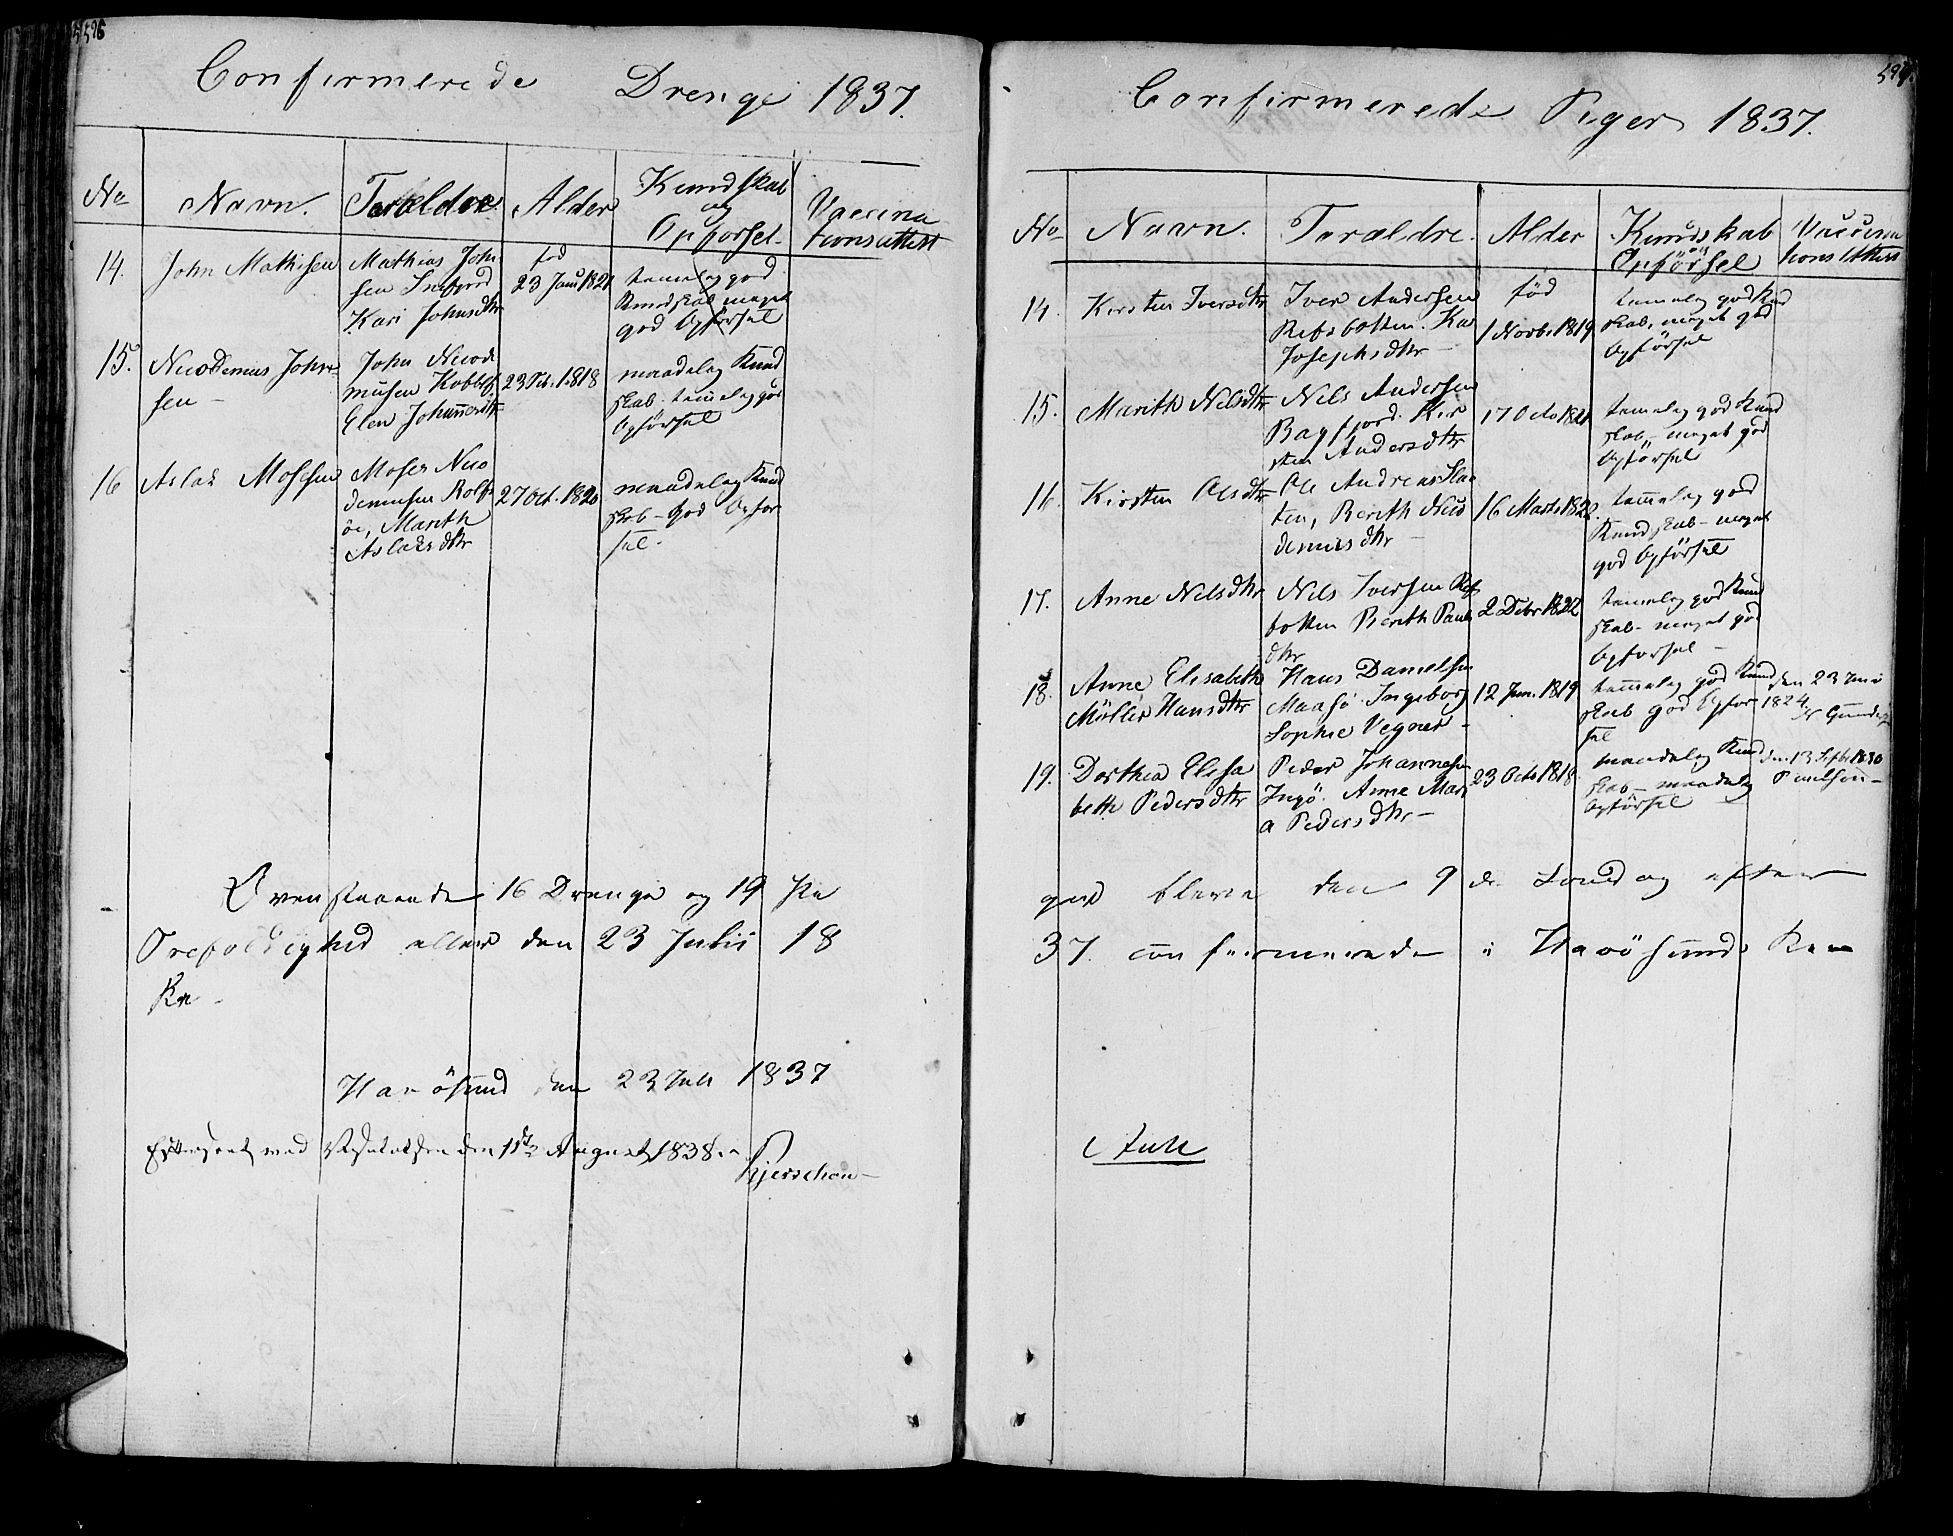 596
Confirmerede Drenge 1837.
No Navn. Forældre Alder Kundskab og Opførsel. Vaccinationsattest
14. John Mathisen
Mathias John
sen Snefjord
Kari Johnsdtr
fød
23 Janu 1821
temelig god
Kundskab meget
god Opførsel
15. Nicodemus John
sen –
John Nicode
musen Kobbefj
Elen Johannesdtr
23 Feb. 1818
maadelig Kund
skab. temelig god
Opförsel
16 Aslak Mosesen
Moses Nico
demusen Rolfs
öe, Marith
Aslaksdtr
27 Oct. 1820
maadelig Kund
skab – God Opfør
sel.
Ovenstaaende 16 Drenge og 19 Pi
Trefoldighed eller den 23 Julii 18
ke –
Havösund den 23 Juli 1837
Efterseet ved Visitatsen den 11te August 1838.
Kjerschow –
597.
Confirmerede Piger 1837.
No Navn. Forældre. Alder Kundskab Opförsel Vaccina
tions Attest
14. Kirsten Iversdtr
Iver Andersen
Refsbotten. Kar
Josephsdtr –
fød
1 Novbr 1819
temelig god Kund
skab, meget god
Opförsel
15. Marith Nilsdtr
Nils Andersen
Bagfjord. Kir
sten Andersdtr
17 Octo 1821
temelig god Kund
skab – meget god
Opförsel
16. Kirsten Olsdtr
Ole Andreas Slaa
ten, Berith Nico
demusdtr –
16 Marts 1822.
temelig god
Kundskab – meget
god Opförsel
17. Anne Nilsdtr
Nils Iversen Refs
botten Berith Pauls
dtr
2 Debr 1822
temelig god Kund
skab – meget god
Opforsel –
18. Anne Elisabeth
Möller Hansdtr
Hans Danielsen
Maasö. Ingeborg
Sophie Vegner –
12 Jun. 1819
temelig god Kund
skab god Opfør
sel
den 23 Juni
1824
19. Dorthea Elisa
beth Pedersdtr
Peder Johannesen
Ingö. Anne Mari
a Pedersdtr –
23 Octo 1818
maadelig Kund
skab – maadelig
Opförsel
den 13 Septbr 1830
Paulsen –
ger bleve den 9 de Søndag efter
37. confirmerede i Havösunds Kir
Aall